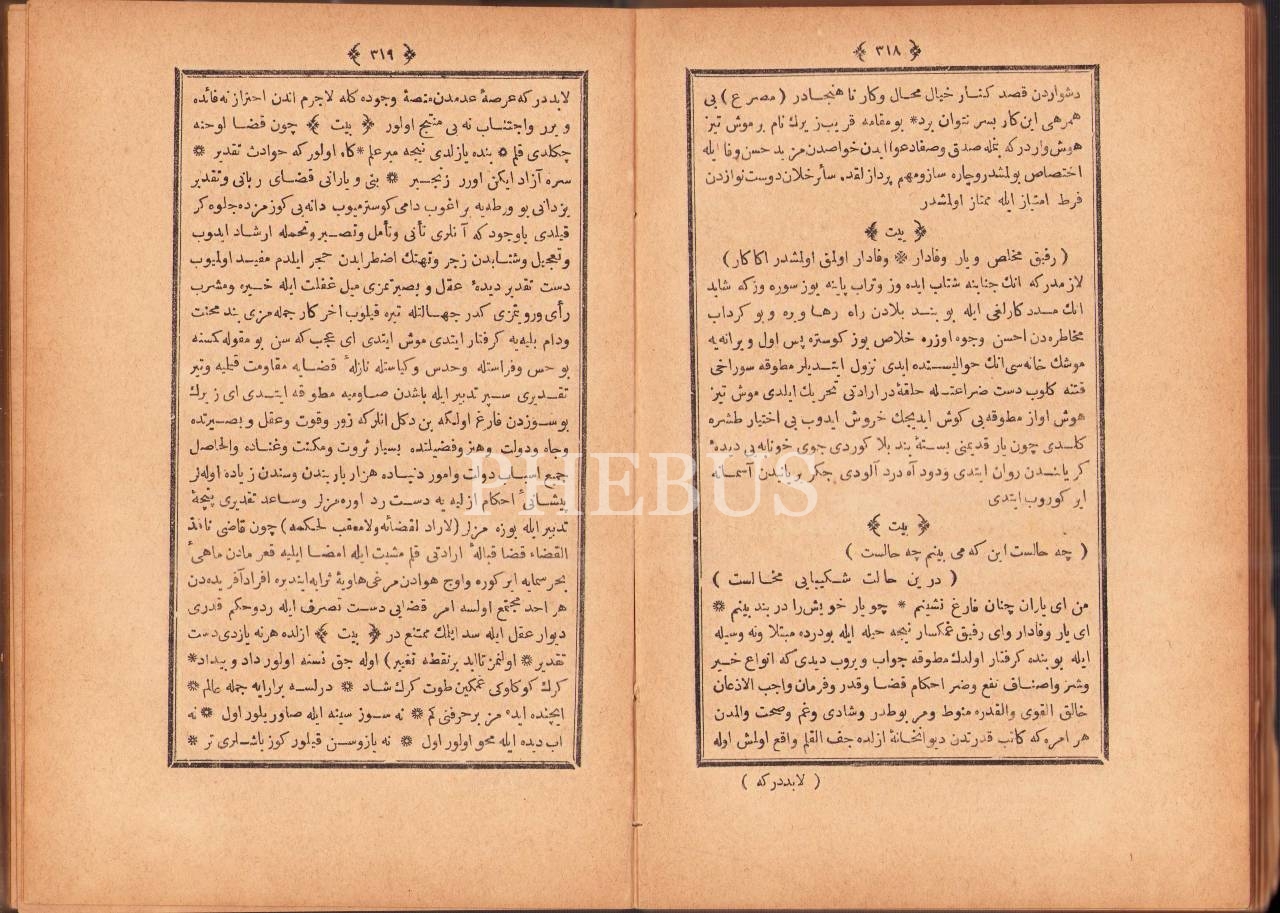 ﴿ ٣١٨ ﴾
دشواردن قصد كنار خيال محال وكار نا هنجادر ( مصرع ) بى
همرهى اين كار بسر نتوان برد * بو مقامه قريب زيرك نام بر موش تيز
هوش واردركه جمله صدق وصفا دعوا ايدن خواصدن مزيد حسن وفا ايله
اختصاص بولمشدر وچاره ساز ومهم پردازلقده سائر خلان دوست نوازدن
فرط امتياز ايله ممتاز اولمشدر
﴿ بيت ﴾
( رفيق مخلص و يار وفادار * وفادار اولمق اولمشدر اكا كار )
لازمدركه انك جنابنه شتاب ايده وز وتراب پاينه يوز سوره وزكه شايد
انك مددكارلغى ايله بو بند بلادن راه رها ويره و بو كرداب
مخاطره دن احسن وجوه اوزره خلاص يوز كوستره پس اول ويرانه يه
موشك خانه سى انك حواليسنده ايدى نزول ايتديلر مطوقه سوراخى
قتنه كلوب دست ضراعتله حلقهٔ در ارادتى تحريك ايلدى موش تيز
هوش اواز مطوقه يى كوش ايديجك خروش ايدوب بى اختيار طشره
كلدى چون يار قديمنى بستهٔ بند بلا كوردى جوى خونابه يى ديدهٔ
كرياندن روان ايتدى ودود آه درد آلودى جكر بريانندن آسمانه
ايركوروب ايتدى
﴿ بيت ﴾
( چه حالست اين كه مى بينم چه حالست )
( درين حالت شكيبايى مخالست )
من اى ياران چنان فارغ نشينم * چو يار خويش را در بند بينم *
اى يار وفادار واى رفيق غمكسار نيجه حيله ايله بودرده مبتلا ونه وسيله
ايله بو بنده كرفتار اولدك مطوقه جواب ويروب ديدى كه انواع خير
وشر واصناف نفع وضر احكام قضا وقدر وفرمان واجب الاذعان
خالق القوى والقدره منوط ومربوطدر وشادى وغم وصحت والمدن
هر امره كه كاتب قدرتدن ديوانخانهٔ ازلده جف القلم واقع اولمش اوله
( لابددركه )
﴿ ٣١٩ ﴾
لابددركه عرصهٔ عدمدن منصهٔ وجوده كله لاجرم اندن احتراز نه فائده
ويرر واجتناب نه يى منتج اولور ﴿ بيت ﴾ چون قضا لوحنه
چكلدى قلم * بنده يازلدى نيجه ميرعلم * كاه اولوركه حوادث تقدير *
سره آزاد ايكن اورر زنجير * بنى ويارانى قضاى ربانى وتقدير
يزدانى بو ورطه يه براغوب دامى كوسترميوب دانه يى كوزمزده جلوه كر
قيلدى باوجود كه آنلرى تأنى وتأمل وتصبر وتحمله ارشاد ايدوب
وتعجيل وشتابدن زجر وتهتك اضطرابدن حجر ايلدم مفيد اولميوب
دست تقدير ديدهٔ عقل و بصيرتمزى ميل غفلت ايله خيره ومشرب
رأى ورويتمزى كدر جهالتله تيره قيلوب اخر كار جمله مزى بند محنت
ودام بليه يه كرفتار ايتدى موش ايتدى اى عجب كه سن بو مقوله كسنه
بو حس وفراستله وحدس وكياستله نازلهٔ قضايه مقاومت قيليه وتير
تقديرى سپر تدبير ايله باشدن صاوميه مطوقه ايتدى اى زيرك
بو سوزدن فارغ اولكه بن دكل انلركه زور وقوت وعقل و بصيرتده
وجاه ودولت وهنر وفضيلتده بسيار ثروت ومكنت وغناده والحاصل
جميع اسباب دولت وامور دنياده هزار بار بندن وسندن زياده اوله لر
پيشانئ احكام ازليه يه دست رد اوره مزلر وساعد تقديرى پنجهٔ
تدبير ايله بوزه مزلر (لاراد لقضائه ولا معقب لحكمه) چون قاضى نافذ
القضاء قضا قبالهٔ ارادتى قلم مشيت ايله امضا ايليه قعر مادن ماهى‌ٔ
بحر سمايه ايركوره واوج هوادن مرغى هاويهٔ ترابه ايندیره افراد آفريده دن
هر احد مجتمع اولسه امر قضايى دست تصرف ايله رد وحكم قدرى
ديوار عقل ايله سد ايلك ممتنع در ﴿ بيت ﴾ ازلده هرنه يازدى دست
تقدير * اولنمز تا ابد بر نقطه تغيير) اوله جق نسنه اولور داد و بيداد *
كرك كوكلوكى غمكين طوت كرك شاد * درلسه برارايه جمله عالم *
ايچنده ايده مز بر حرفنى كم * نه سوز سينه ايله صاوريلور اول * نه
اب ديده ايله محو اولور اول * نه يازوسن قيلور كوز ياشلرى تر *